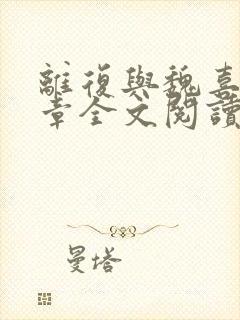 離復與魏喜
章全文閱讀
曼塔